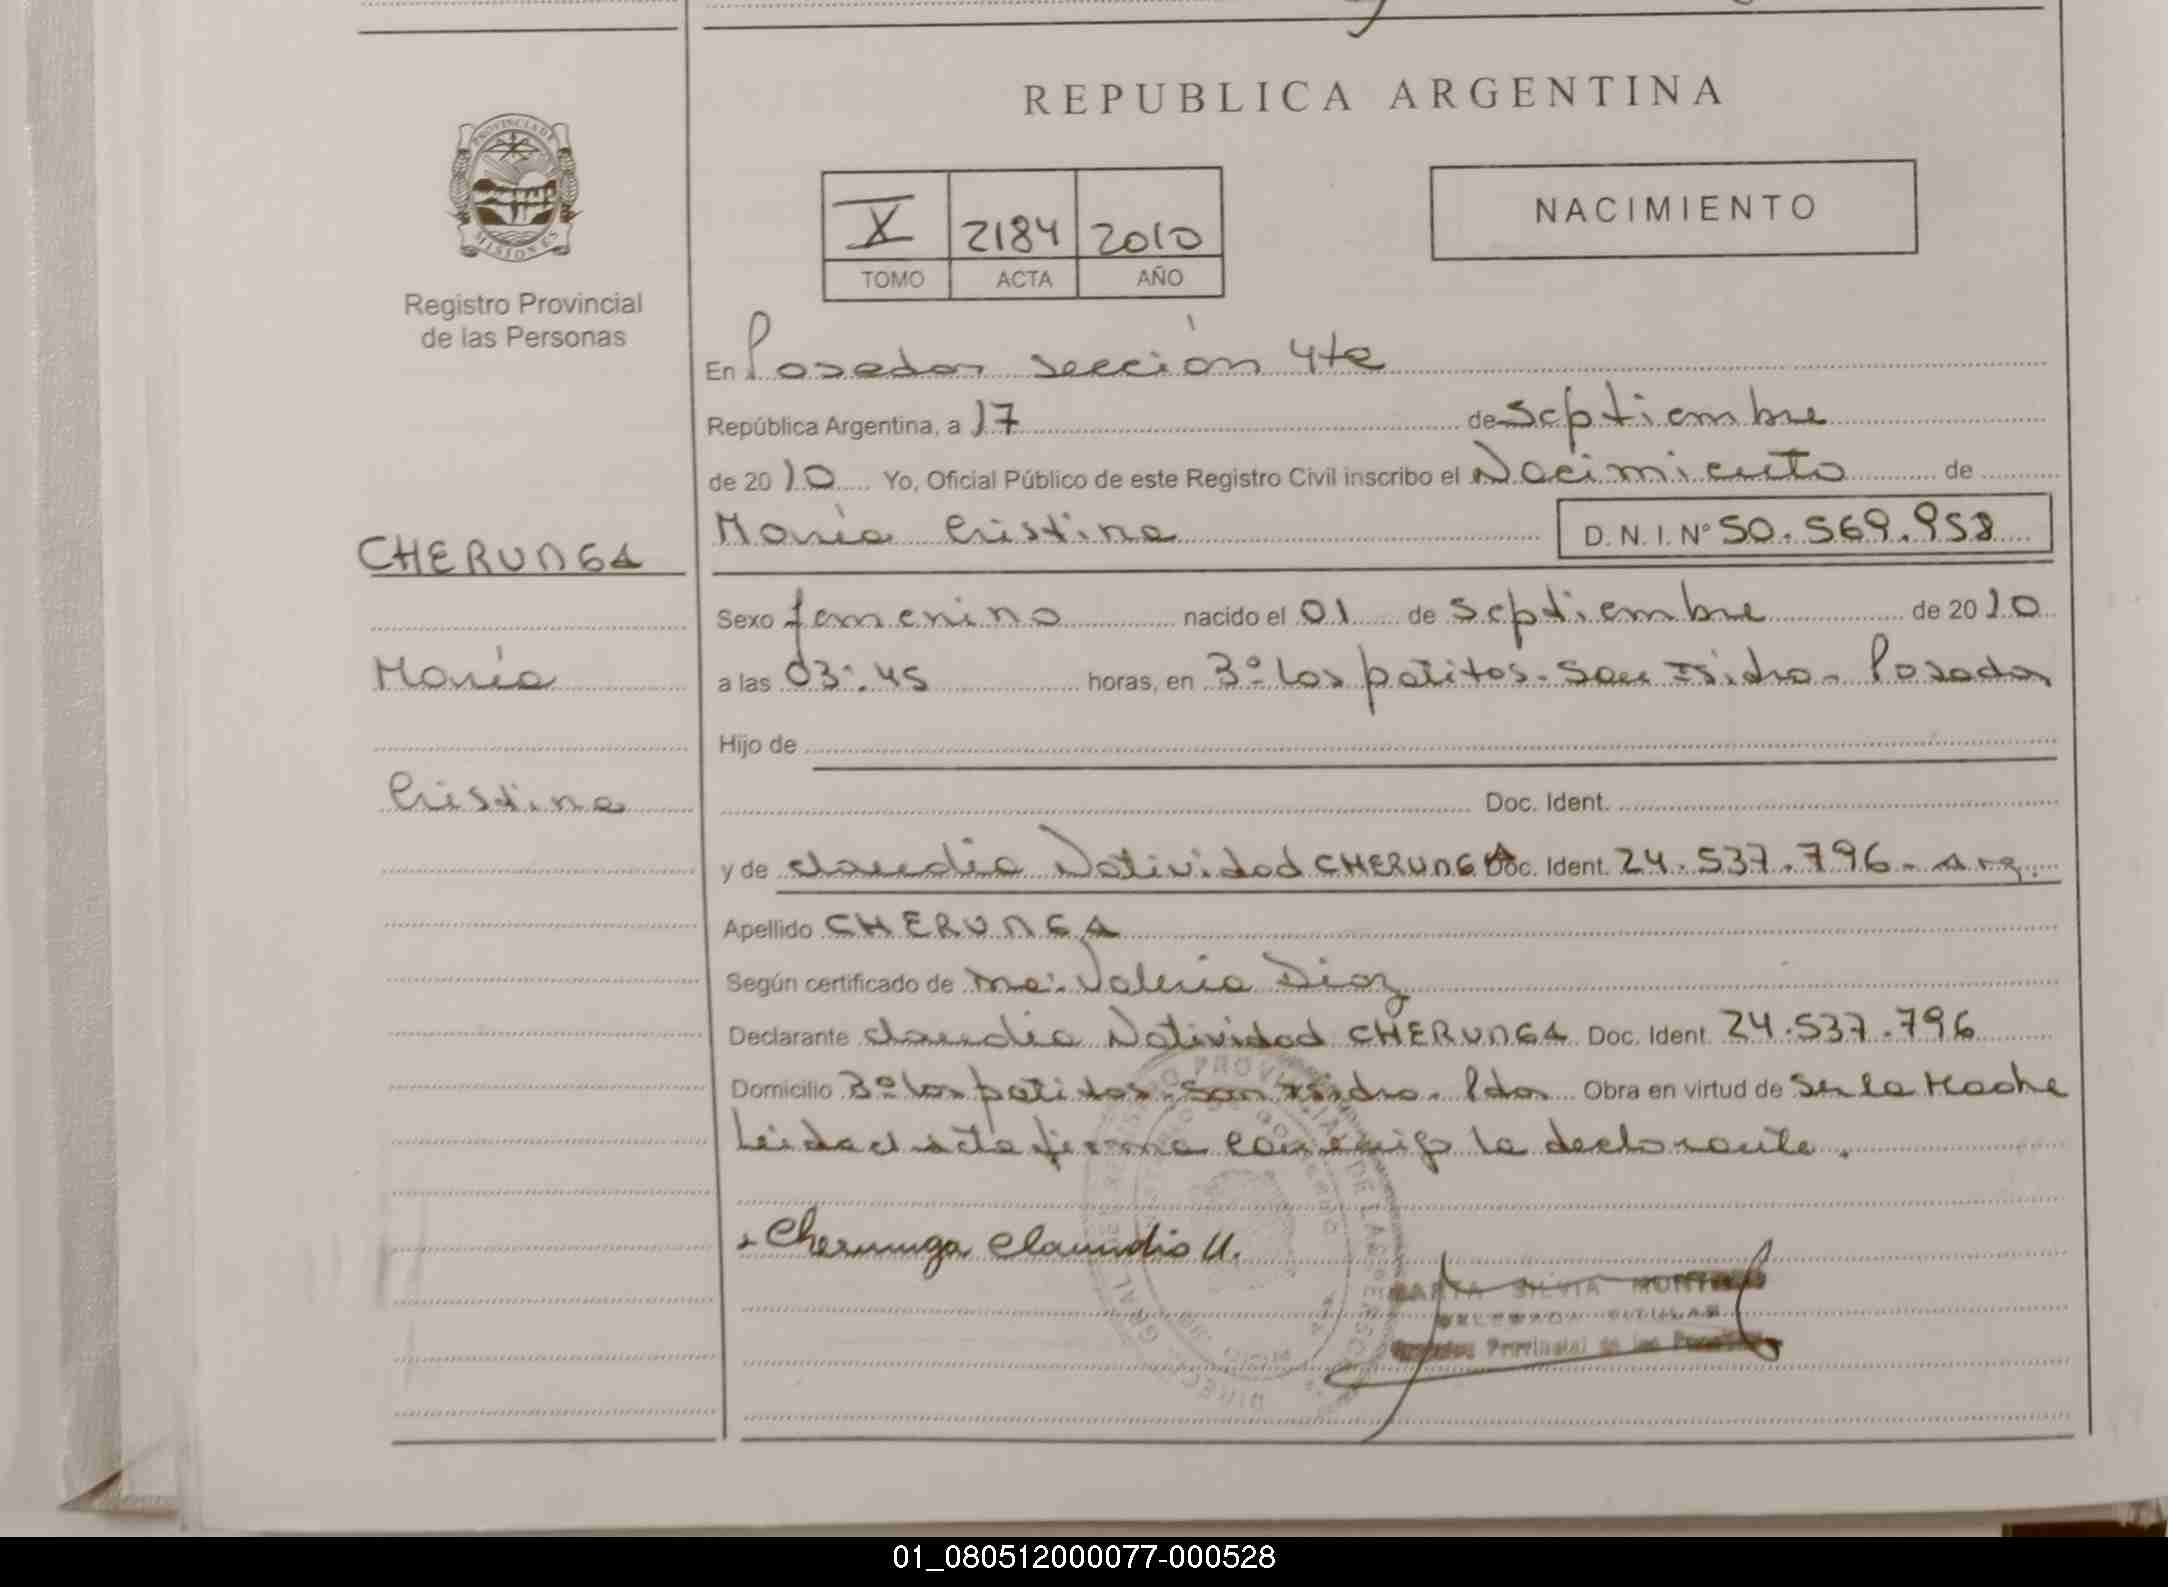 REPUBLICA ARGENTINA
PROVINCIA DE
MISIONES
Registro Provincial
de las Personas
X 2184 2010
TOMO ACTA AÑO
NACIMIENTO
En Posadas sección 4ta
República Argentina, a 17 de Septiembre
de 2010 Yo, Oficial Público de este Registro Civil inscribo el Nacimiento de
CHERUNGA
María Cristina D. N. I. Nº 50.569.958
Sexo femenino nacido el 01 de Septiembre de 2010
María
a las 03:45 horas, en Bº Los patitos - San Isidro - Posadas
Hijo de
Cristina
Doc. Ident.
y de Claudia Natividad CHERUNGA Doc. Ident. 24.537.796 - Arg.
Apellido CHERUNGA
Según certificado de Ma. Valeria Diaz
Declarante Claudia Natividad CHERUNGA Doc. Ident. 24.537.796
Domicilio Bº Los patitos - San Isidro - Pdas Obra en virtud de Ser la Madre
Leida el acta firma conmigo la declarante.
Cherunga Claudia N.
MARTA SILVIA
DELEGADA TITULAR
Registro Provincial de las Personas
01_080512000077-000528